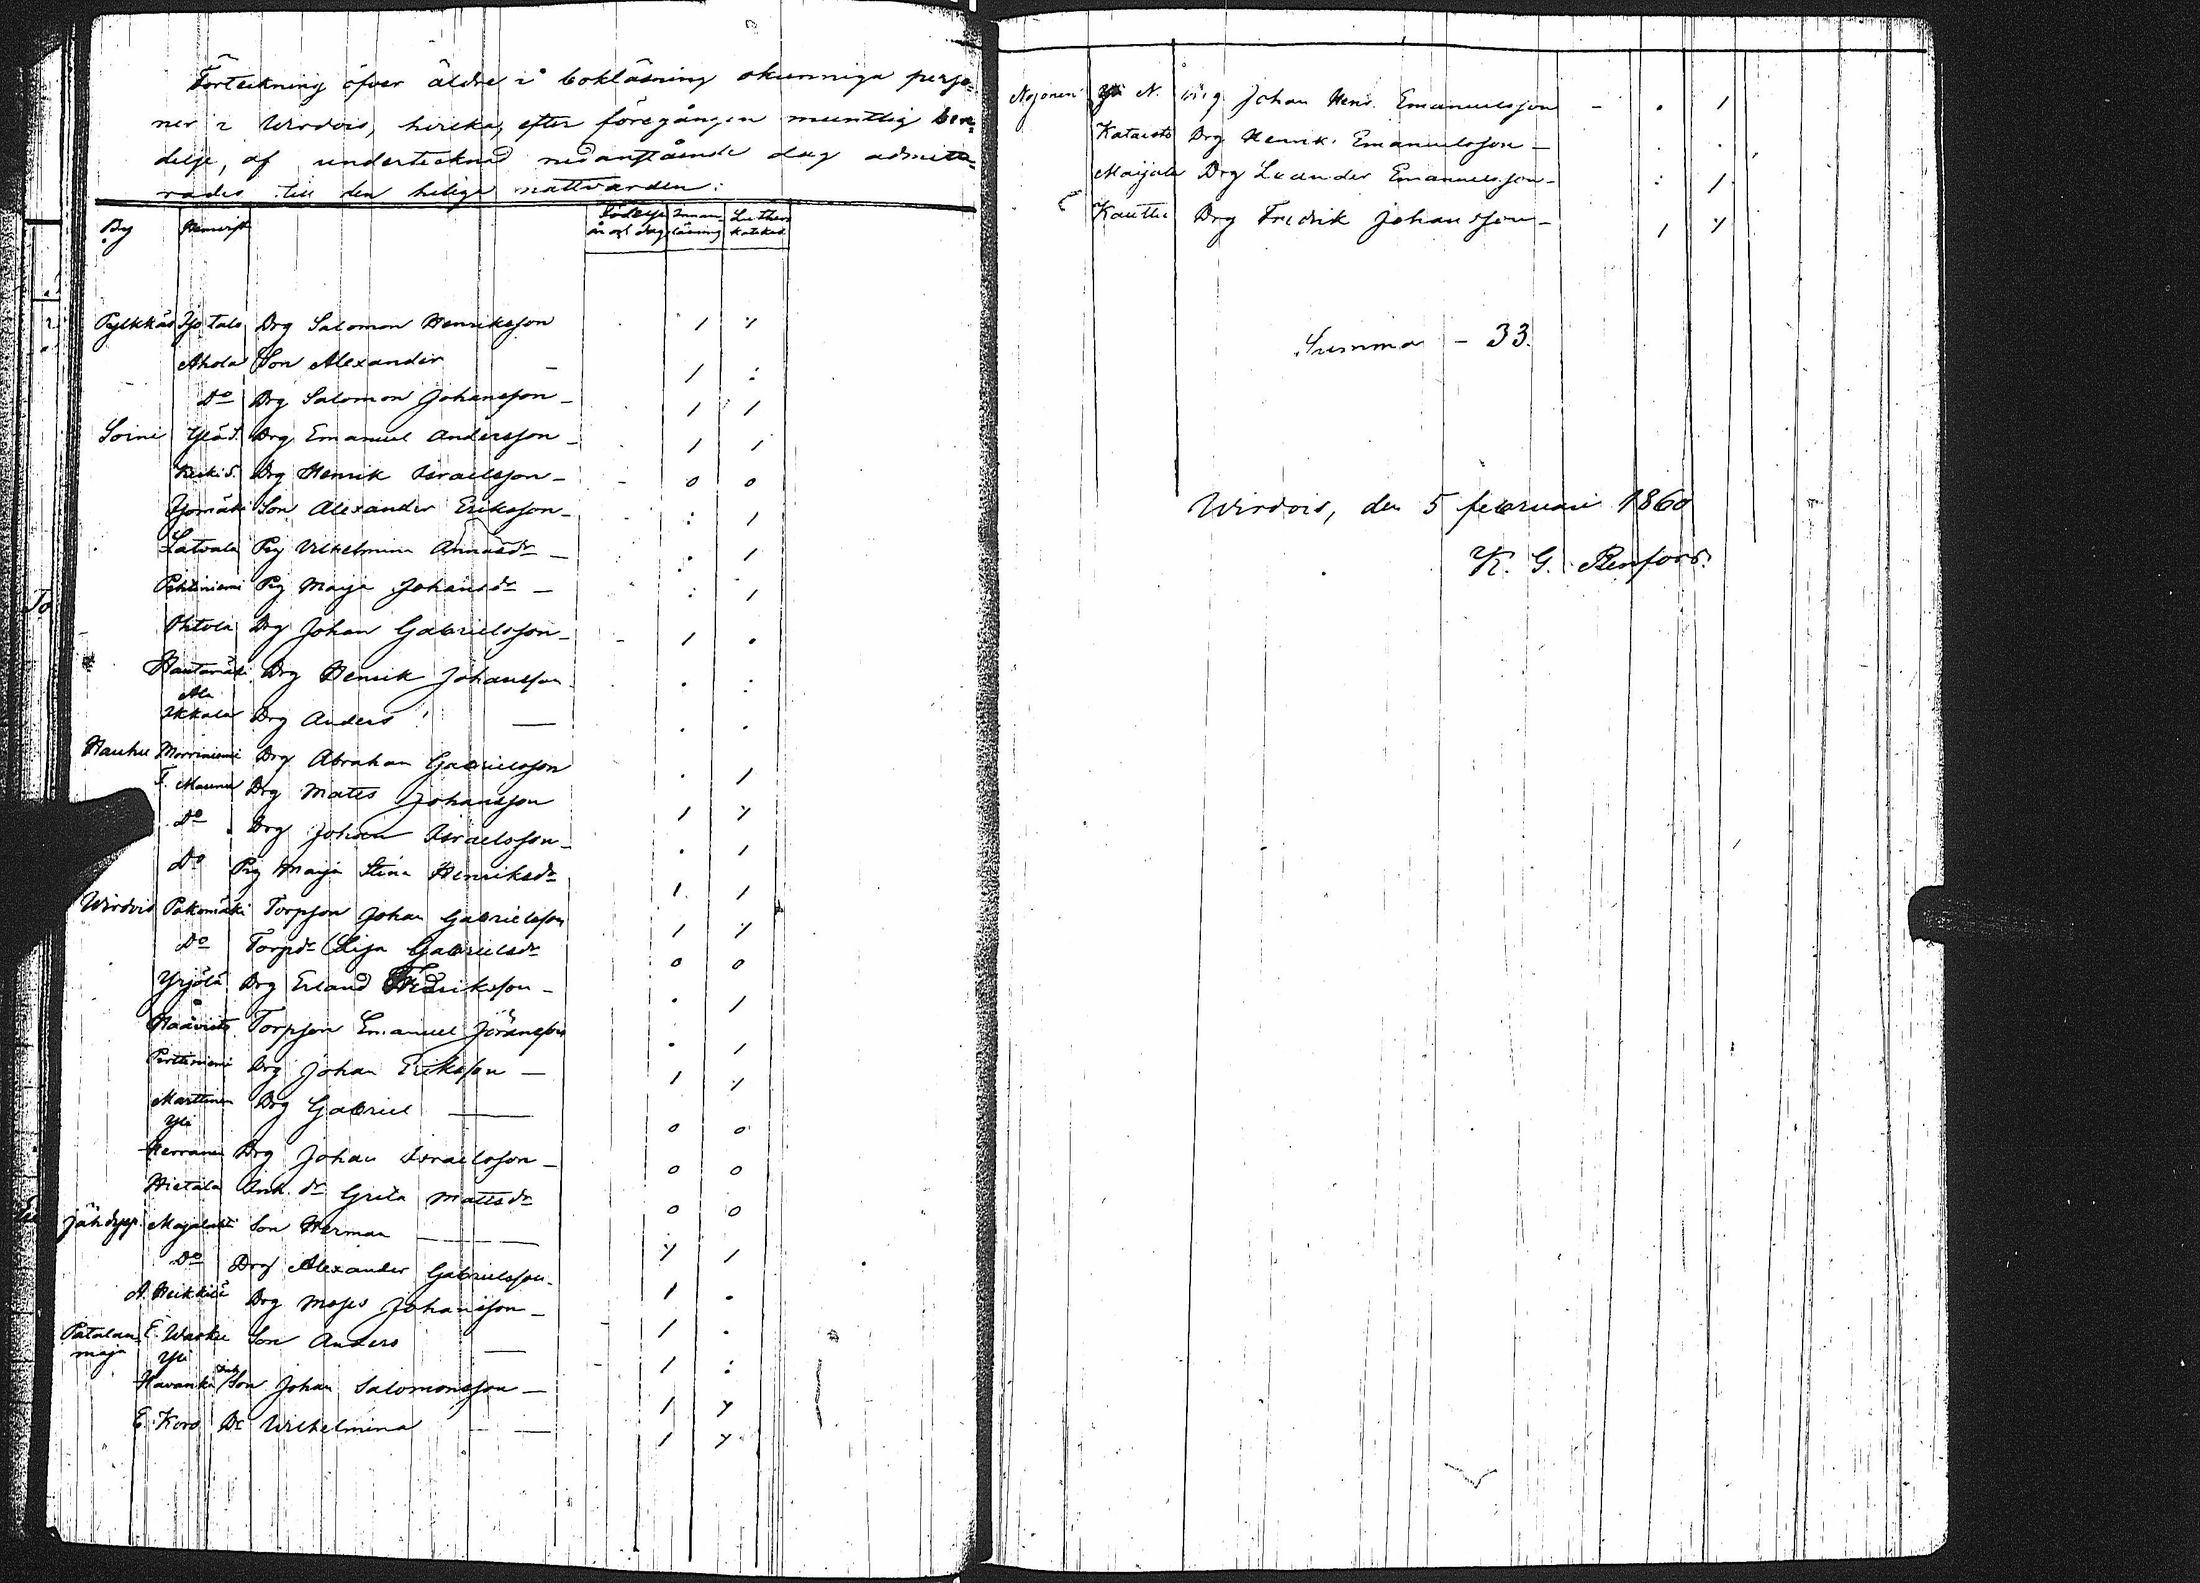 Förteckning öfver äldre i bokläsning okunniga perso-
ner i Wirdois, hvilka, efter föregången muntlig bere-
delse, af undertecknad nedanstående dag admitte-
rades till den heliga nattvarden:
By Hemvist Födelse år och dag Innan-läsning Luthers kateket
Pylkkäs Isotalo Drg Salomon Henriksson / y
Ahola Son Alexander - / :
Do Drg Salomon Johansson - / /
Soini Ylä S. Drg Emanuel Andersson - / /
Keski S. Drg Henrik Israelsson - o o
Isomäki Son Alexander Eriksson - : /
Latvala Pig Vilhelmina Annasdr - . /
Pihlaniemi Pig Maja Johansdr - : /
Ohtola Drg Johan Gabrielsson - / .
Hautamäki Drg Henrik Johansson . :
Ala
Ikkala Drg Anders — . .
Hauhu Morriniemi Drg Abraham Gabrielsson . /
F. Mauna Drg Matts Johansson / y
Do Drg Johan Israelsson - . /
Do Pig Maija Stina Henriksdr / /
Wirdois Pakomäki Torpson Johan Gabrielsson / y
Do Torpdr Lisa Gabrielsdr o o
Yrjölä Drg Erland Fredriksson - . /
Haavisto Torpson Emanuel Göransson . /
Perttiniemi Drg Johan Eriksson — / y
Marttinen Drg Gabriel — o o
Yli
Herranen Drg Johan Israelsson - o o
Hietala Ink. dr Greta Mattsdr o o
Jähdyspp. Majalahti Son Herman — y /
Do Drg Alexander Gabrielsson - / .
A. Heikkilä Drg Moses Johansson - / .
Patalan- E. Wasku Son Anders — / :
maja Yli
Havanka Son Johan Salomonsson — / y
E. Koro Dr Wilhelmina — / y
Nojonen Yli N. Drg Johan Henr. Emanuelsson - . /
Kataisto Drg Henrik Emanuelsson - . .
Maijala Drg Leander Emanuelsson - : /
Kauttu Drg Fredrik Johansson - / y
Summa - 33.
Wirdois, den 5 februari 1860
K. G. Renfors.